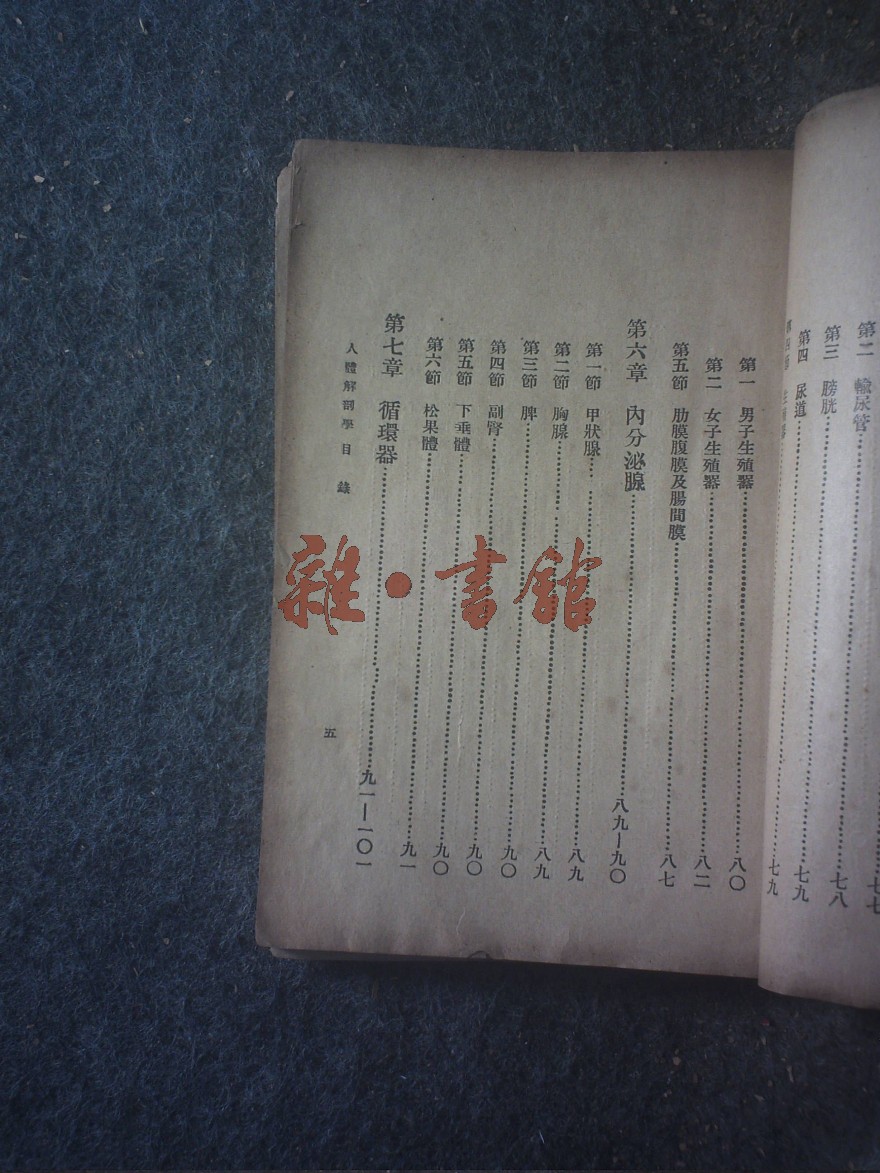 第二 輸尿管 七七
第三 膀胱 七八
第四 尿道 七九
七九
第一 男子生殖器 八〇
第二 女子生殖器 八二
第五節 肋膜腹膜及腸間膜 八七
第六章 內分泌腺 八九—九〇
第一節 甲狀腺 八九
第二節 胸腺 八九
第三節 脾 九〇
第四節 副腎 九〇
第五節 下垂體 九〇
第六節 松果體 九一
第七章 循環器 九一—一〇一
人體解剖學 目錄
五
雜·書館